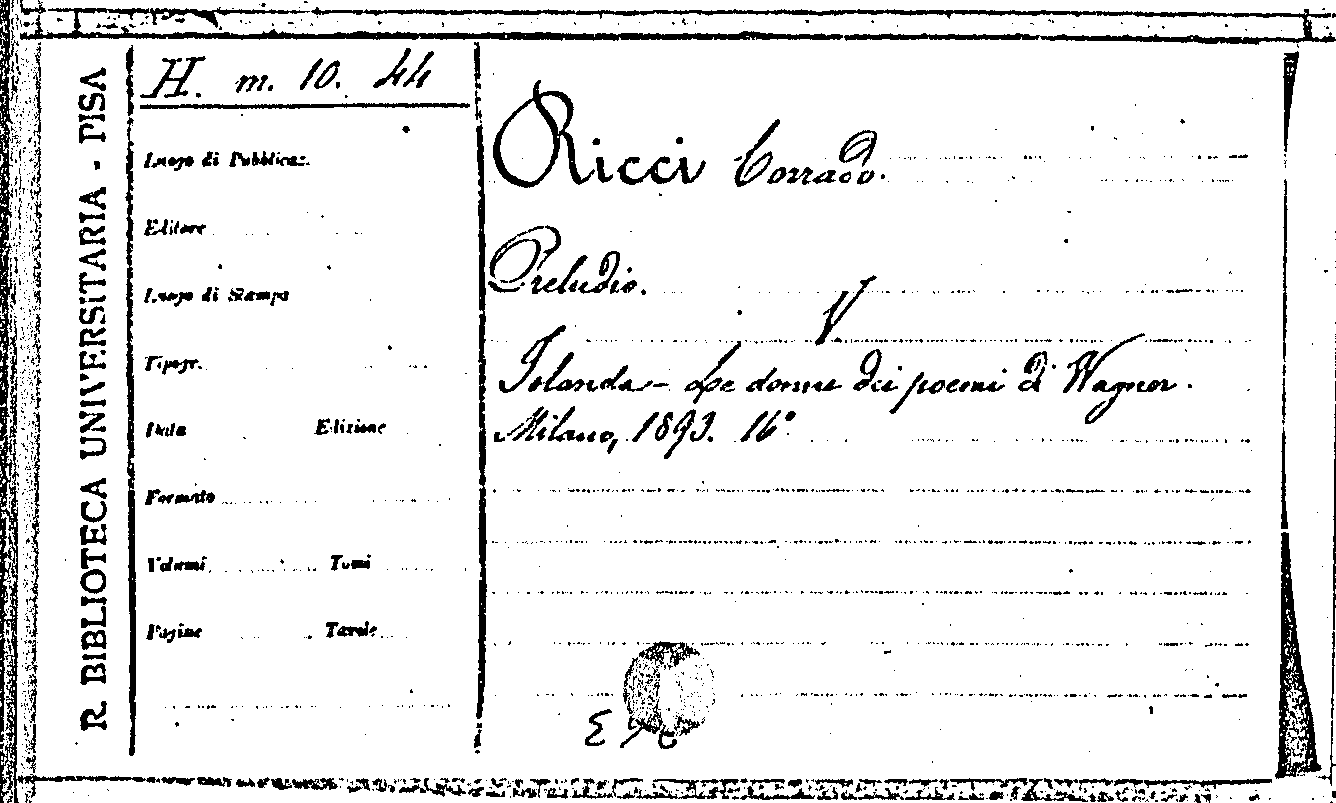 R. BIBLIOTECA UNIVERSITARIA - PISA
H. m. 10. 44
Luogo di Pubblicaz.
Editore
Luogo di Stampa
Tipogr.
Data Edizione
Formato
Volumi Tomi
Pagine Tavole
Ricci Corrado.
Preludio.
V
Jolanda - Le donne dei poemi di Wagner.
Milano, 1893. 16°